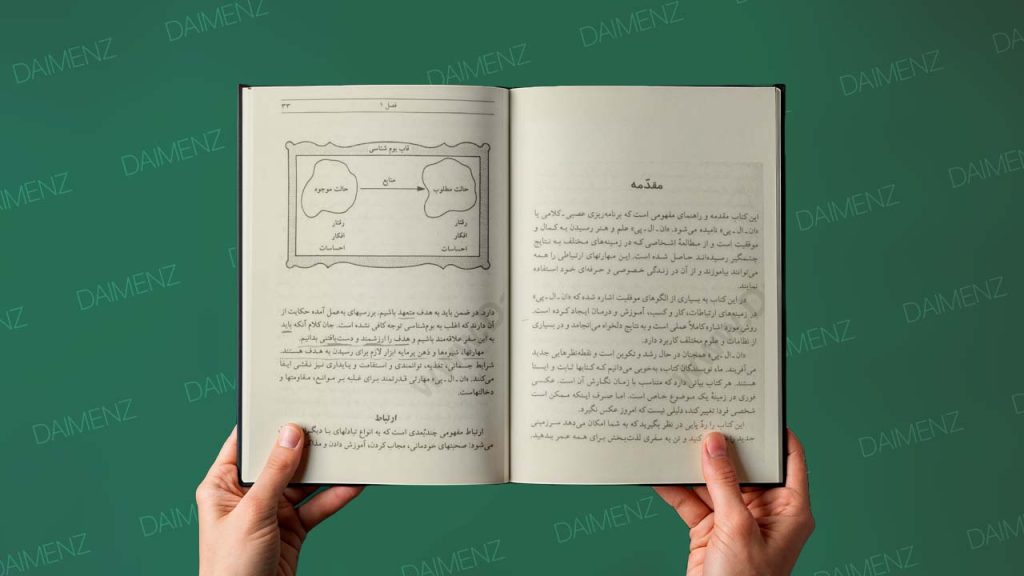 مقدّمه
این کتاب مقدمه و راهنمای مفهومی است که برنامه‌ریزی عصبی ـ کلامی یا
«ان ـ ال ـ پی» نامیده می‌شود. «ان ـ ال ـ پی» علم و هنر رسیدن به کمال و
موفقیت است و از مطالعهٔ اشخاصی که در زمینه‌های مختلف به نتایج
چشمگیر رسیده‌اند حاصل شده است. این مهارتهای ارتباطی را همه
می‌توانند بیاموزند و از آن در زندگی خصوصی و حرفه‌ای خود استفاده
نمایند.
در این کتاب به بسیاری از الگوهای موفقیت اشاره شده که «ان ـ ال ـ پی»
در زمینه‌های ارتباطات، کار و کسب، آموزش و درمان ایجاد کرده است.
روش مورد اشاره کاملاً عملی است و به نتایج دلخواه می‌انجامد و در بسیاری
از نظامات و علوم مختلف کاربرد دارد.
«ان ـ ال ـ پی» همچنان در حال رشد و تکوین است و نقطه‌نظرهایی جدید
می‌آفریند. ماه نویسندگان کتاب، به‌خوبی می‌دانیم که کتابها ثابت و ایستا
هستند. هر کتاب بیانی دارد که متناسب با زمان نگارش آن است. عکسی
فوری در زمینهٔ یک موضوع خاص است. اما صرف اینکه ممکن است
شخصی فردا تغییر کند، دلیلی نیست که امروز عکس نگیرد.
این کتاب را ردّ پایی در نظر بگیرید که به شما امکان می‌دهد سرزمینی
جدید را کنید و تن به سفری لذت‌بخش برای همه عمر بدهید.
فصل ۱ ۳۳
قاب بوم شناسی
حالت مطلوب منابع حالت موجود
رفتار رفتار
افکار افکار
احساسات احساسات
دارد. در ضمن باید به هدف متعهد باشیم. بررسیهای به‌عمل آمده حکایت از
آن دارند که اغلب به بوم‌شناسی توجه کافی نشده است. جان کلام آنکه باید
به این سفر علاقه‌مند باشیم و هدف را ارزشمند و دست‌یافتنی بدانیم.
مهارتها، شیوه‌ها و ذهن پرمایه ابزار لازم برای رسیدن به هدف هستند.
شرایط جسمانی، تغذیه، توانمندی و استقامت و پایداری نیز نقشی ایفا
می‌کنند. «ان ـ ال ـ پی» مهارتی قدرتمند برای غلبه بر موانع، مقاومتها و
دخالتهاست.
ارتباط
ارتباط مفهومی چندبُعدی است که به انواع تبادلهای با دیگر
می‌شود: صحبتهای خودمانی، مجاب کردن، آموزش دادن و مذاکر
DAIMENZ
DAIMENZ
DAIMENZ
DAIMENZ
DAIMENZ
DAIMENZ
DAIMENZ
DAIMENZ
DAIMENZ
DAIMENZ
DAIMENZ
DAIMENZ
DAIMENZ
DAIMENZ